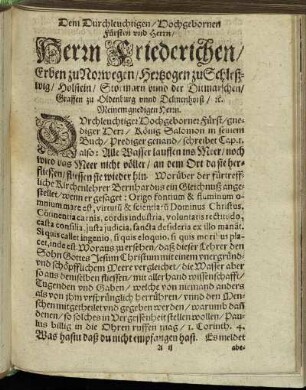 Dem Durchleuchtigen / Hochgebornen
Fürsten vnd Herrn /
Herrn Friederichen /
Erben zu Norwegen / Hertzogen zu Schleß-
wig / Holstein / Stormarn vnnd der Ditmarschen /
Graffen zu Oldenburg vnnd Delmenhorst / ꝛc.
Meinem gnedigen Herrn.
DVrchleuchtiger Hochgeborner Fürst / gne-
diger Herr / König Salomon in seinem
Buch / Prediger genand / schreibet Cap. 1.
also: Alle Wasser lauffen ins Meer / noch
wird das Meer nicht völler / an dem Ort da sie her-
fliessen / fliessen sie wieder hin. Worüber der fürtreff-
liche Kirchenlehrer Bernhardus ein Gleichnuß ange-
stellet / wenn er gesaget: Origo fontium & fluminum o-
mnium mare est, virtutū & scientiarū Dominus Christus,
Continentia carnis, cordis industria, voluntatis rectitudo,
casta consilia, justa judicia, sancta desideria ex illo manāt.
Si quis callet ingenio, si quis eloquio, si quis moribus pla-
cet, inde est. Woraus zu ersehen / daß dieser Lehrer den
Sohn Gottes Jesum Christum mit einem vnergründ-
vnd schöpfflichem Meere vergleichet / die Wasser aber
so aus demselben fliessen / mit aller hand wissenschafft /
Tugenden vnd Gaben / welche von niemand anders
als von ihm vrsprünglich herrühren / vnnd den Men-
schen mitgetheilet vnd gegeben werden / warumb dañ
denen / so solches in Vergessenheit stellen wollen / Pau-
lus billig in die Ohren ruffen mag / 1. Corinth. 4.
Was hastu daß du nicht empfangen hast. Es meldet
A ij
abe-